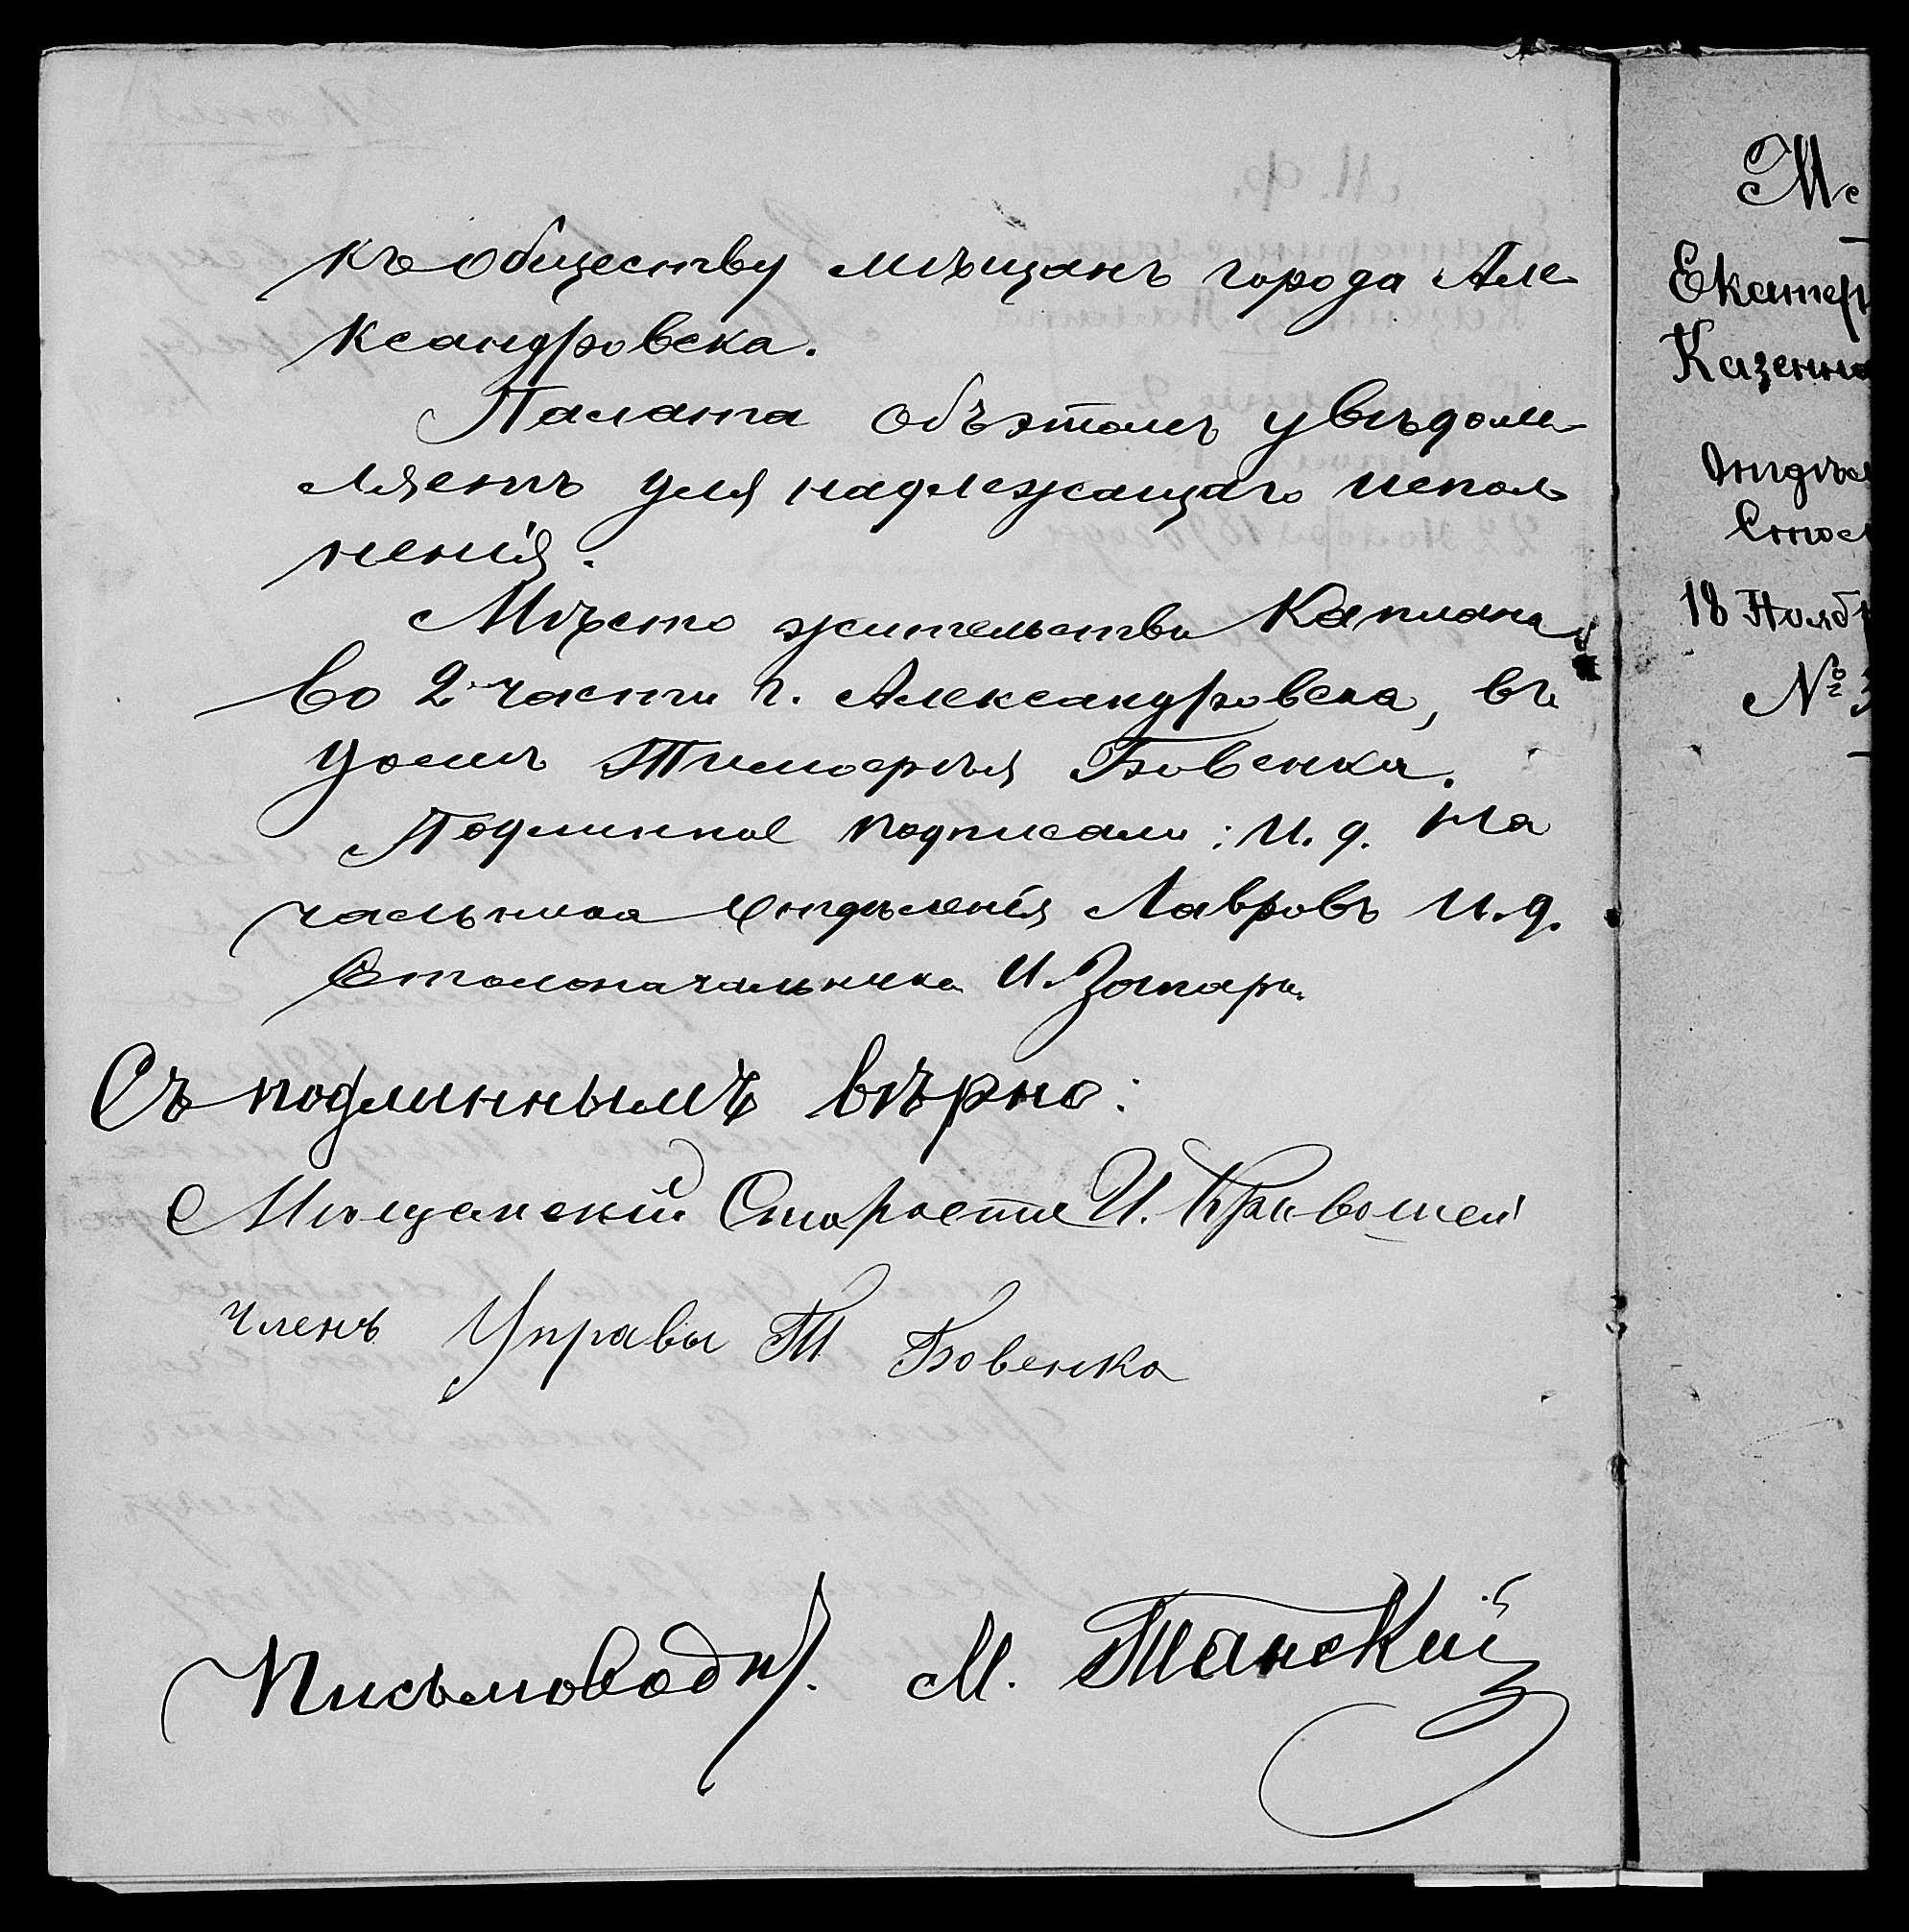 къ обществу мѣщанъ города Але-
ксандровска.
Палата объ этомъ увѣдом-
ляетъ для надлежащаго испол-
ненія.
Мѣсто жительства Каплана
во 2 части г. Александровска, въ
домѣ Тимофѣя Бовенка.
Подлинное подписали: И. д. На
чальника Отдѣленія Лавровъ И. д.
Столоначальника И. Запара.
Съ подлиннымъ вѣрно:
Мѣщанскій Староста И. Кривошей
Членъ Управы Т Бовенко
Письмовод. М. Танскій
Екатер
Казенна
Отдѣл
Стол
18 Нояб
№ 3